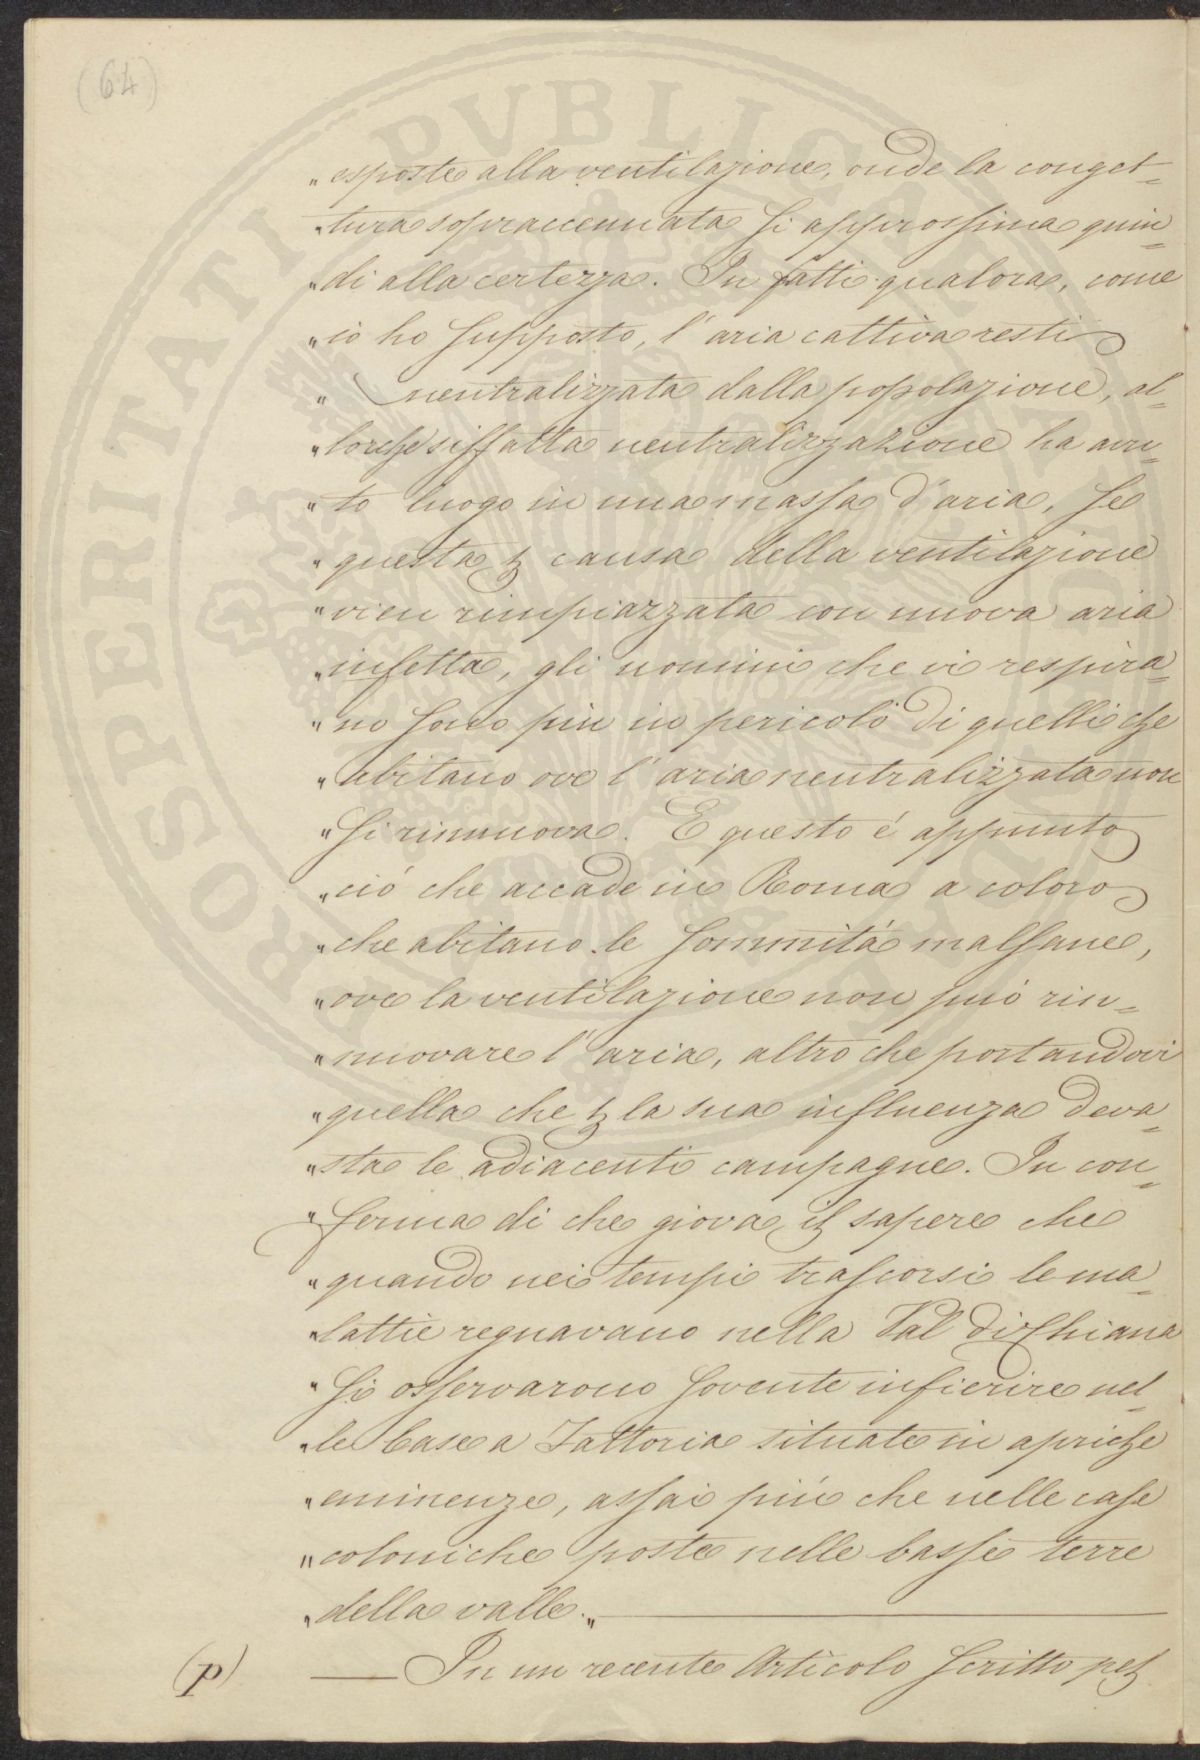 (64)
PROSPERITATI PUBLICAE AUGENDAE
„ esposte alla ventilazione, onde la conget=
„ tura sopraccennata si approssima quin=
„ di alla certezza. In fatti qualora, come
„ io ho supposto, l'aria cattiva resti
„ neutralizzata dalla popolazione, al=
„ lorche siffatta neutralizzazione ha avu=
„ to luogo in una massa d'aria, se
„ questa p causa della ventilazione
„ vien rimpiazzata con nuova aria
„ infetta, gli uomini che vi respira=
„ no sono più in pericolo di quelli che
„ abitano ove l'aria neutralizzata non
„ si rinnuova. E questo é appunto
„ ció che accade in Roma a coloro
„ che abitano le sommitá malsane,
„ ove la ventilazione non puó rin=
„ nuovare l'aria, altro che portandovi
„ quella che p la sua influenza deva=
„ sta le adiacenti campagne. In con=
„ ferma di che giova il sapere che
„ quando nei tempi trascorsi le ma=
„ lattie regnavano nella Val di Chiana
„ si osservarono sovente infierire nel=
„ le Case a Fattoria situate in apriche
„ eminenze, assai piú che nelle case
„ coloniche poste nelle basse terre
„ della valle.„
(p) — In un recente Articolo scritto pel